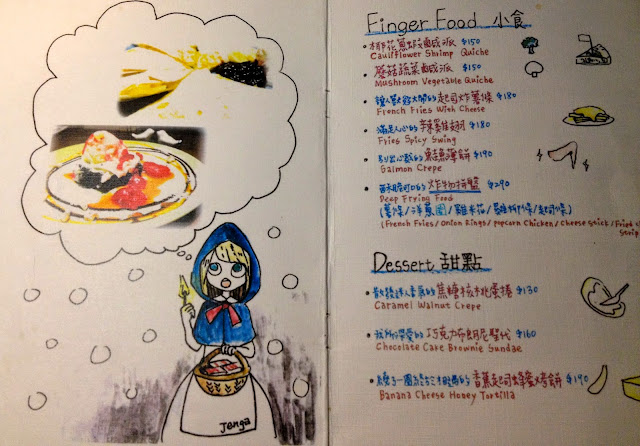 Jenga
Finger Food 小食
•椰花鮮蝦鹹派 $150
Cauliflower Shrimp Quiche
蘑菇蔬菜鹹派 $150
Mushroom Vegetable Quiche
起司炸薯條 $180
French Fries With Cheese
滿足人心的辣雞翅 $180
Fries Spicy Swing
鮭魚薄餅 $190
Salmon Crepe
炸物拼盤 $290
Deep Frying Food
(薯條/洋蔥圈/雞米花/ /起司條)
(French Fries/Onion Rings/popcorn Chicken/Cheese Stick/Fried
Strip
Dessert 甜點
焦糖核桃蛋捲 $130
Caramel Walnut Crepe
巧克力布朗尼聖代 $160
Chocolate Cake Brownie Sundae
香蕉起司蜂蜜烤餅 $190
Banana Cheese Honey Tortilla